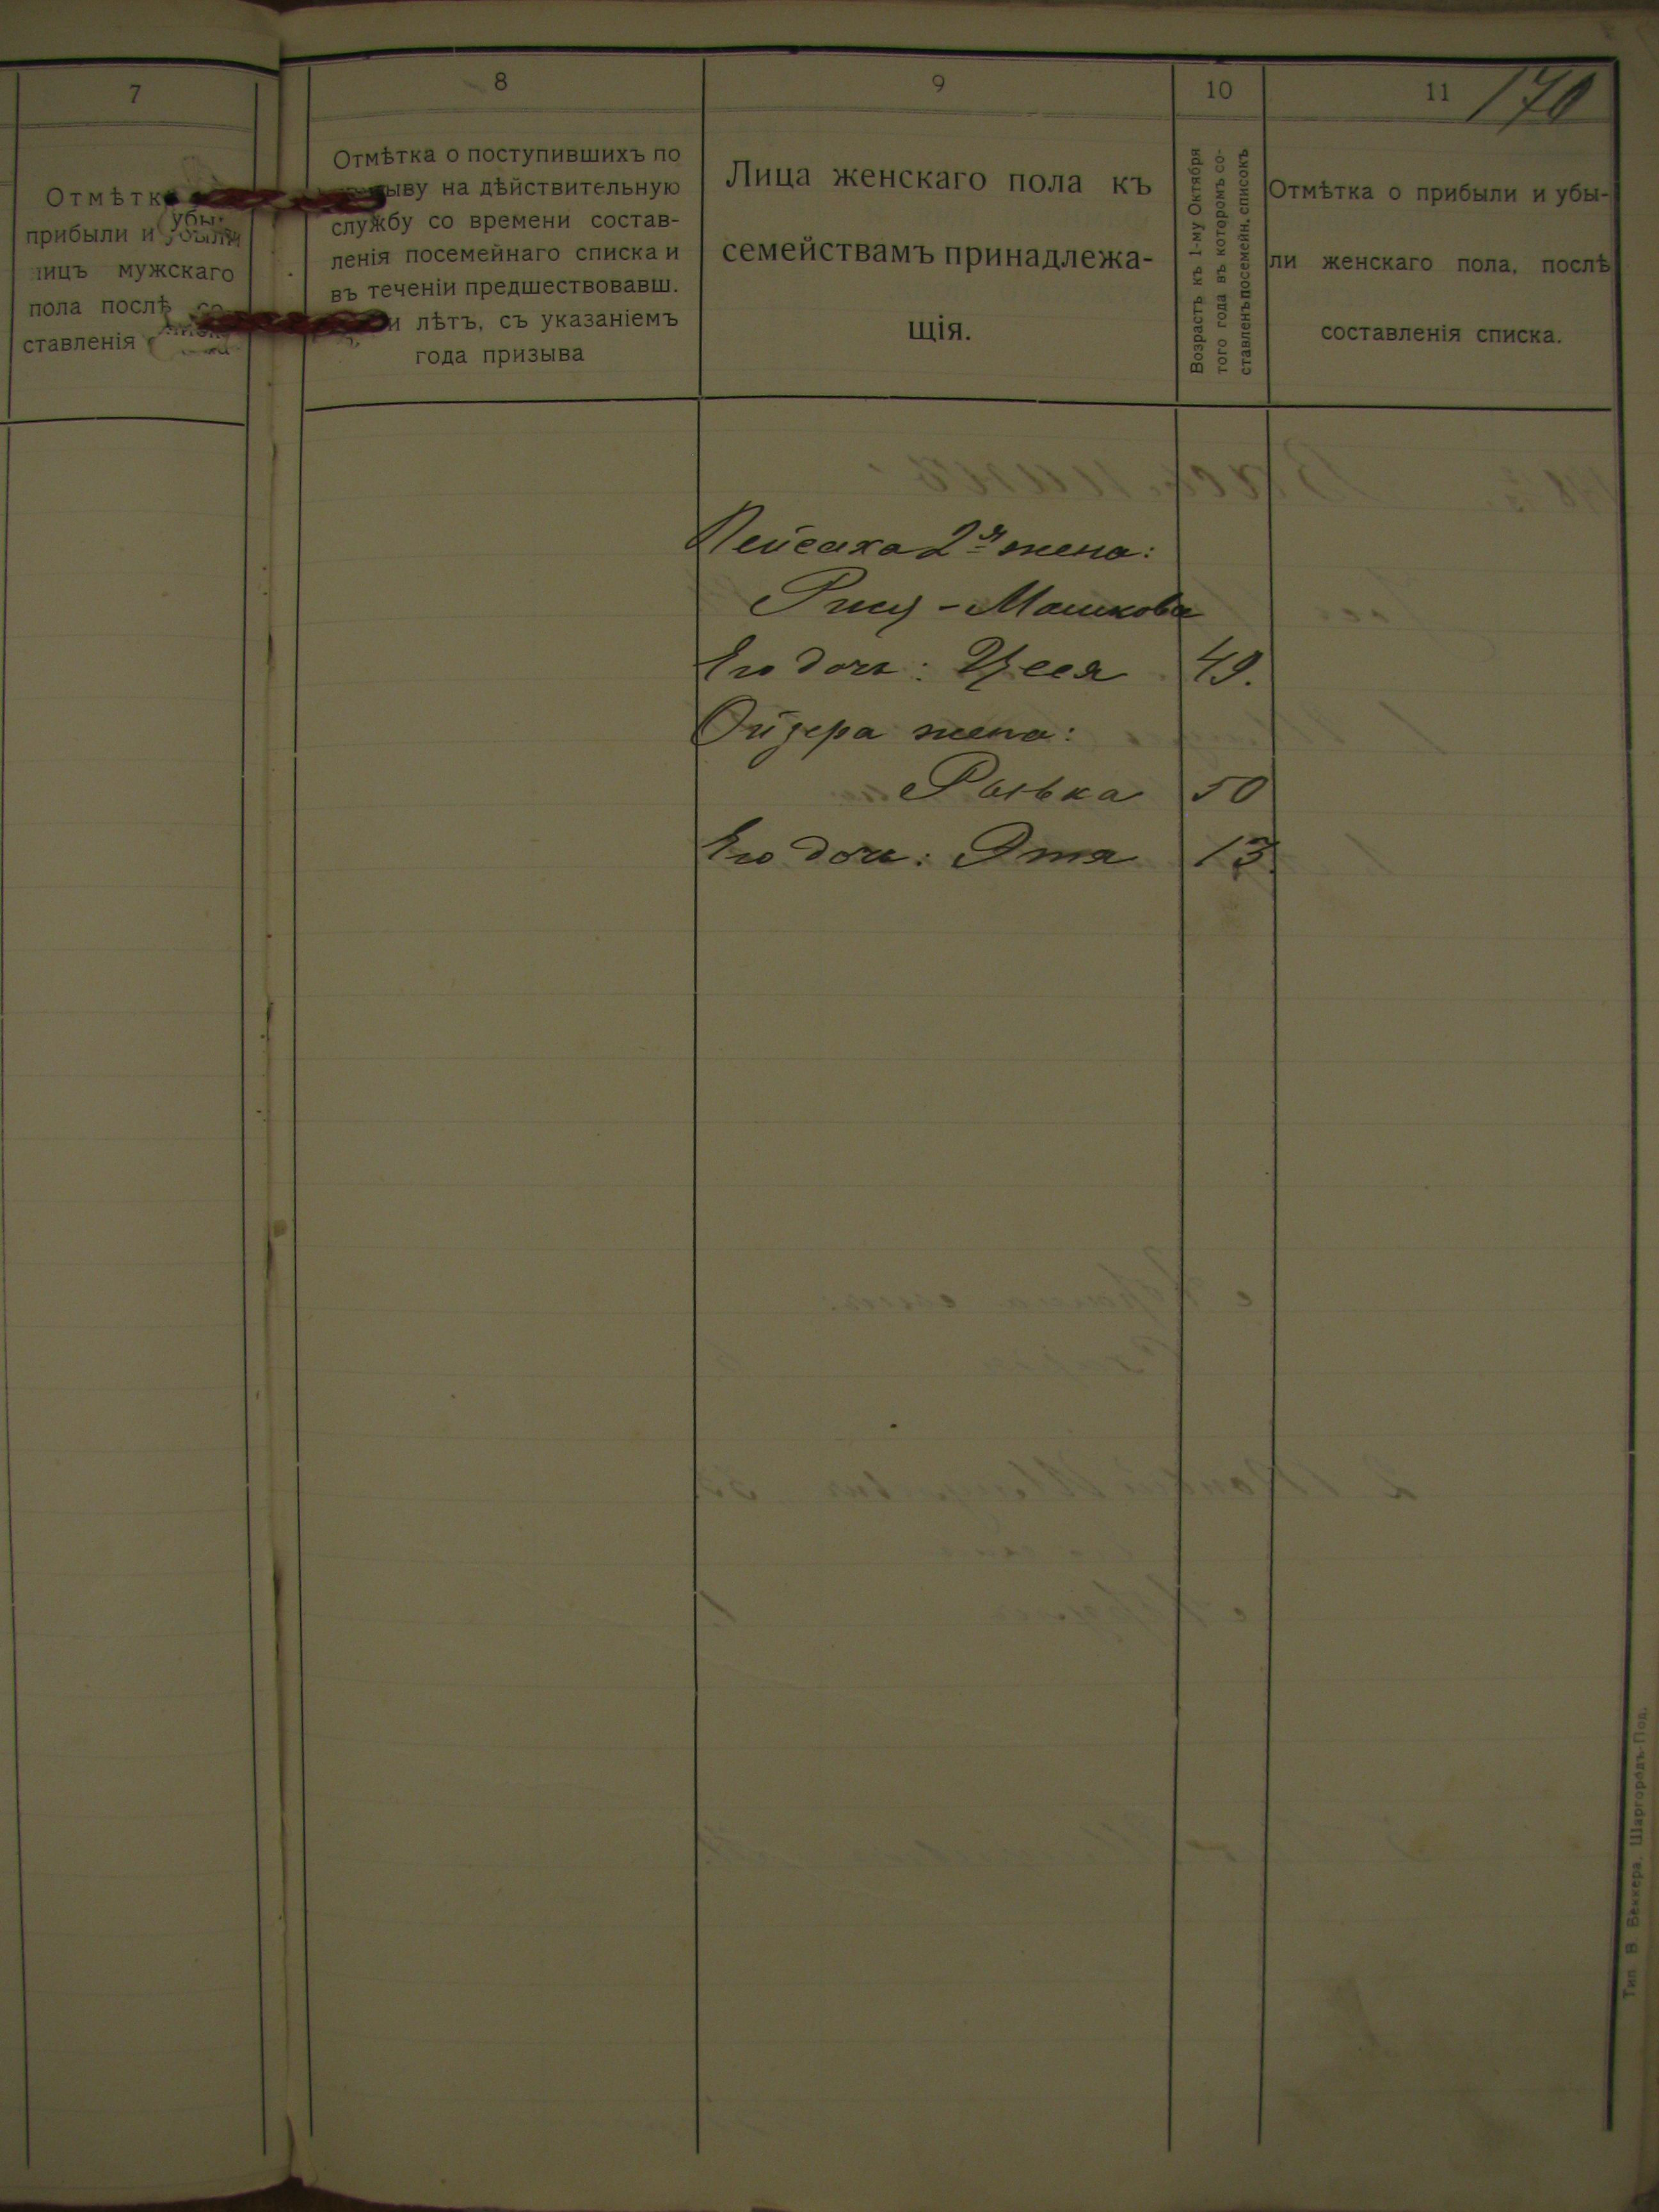 7
Отмѣтк
прибыли и убы-
лицъ мужскаго
пола послѣ со-
ставленія
8
Отмѣтка о поступившихъ по
ыву на дѣйствительную
службу со времени состав-
ленія посемейнаго списка и
въ теченіи предшествовавш.
и лѣтъ, съ указаніемъ
года призыва
9
Лица женскаго пола къ
семействамъ принадлежа-
щія.
10
Возрастъ къ 1-му Октября
того года въ которомъ со-
ставленъ посемейн. списокъ
11
170
Отмѣтка о прибыли и убы-
ли женскаго пола, послѣ
составленія списка.
Пейсаха 2я жена:
Рися - Машкова
Его дочь: Цея 49.
Ойзера жена:
Рывка 50
Его дочь: Эта 13
Тип. В. Беккера, Шаргородъ-Под.